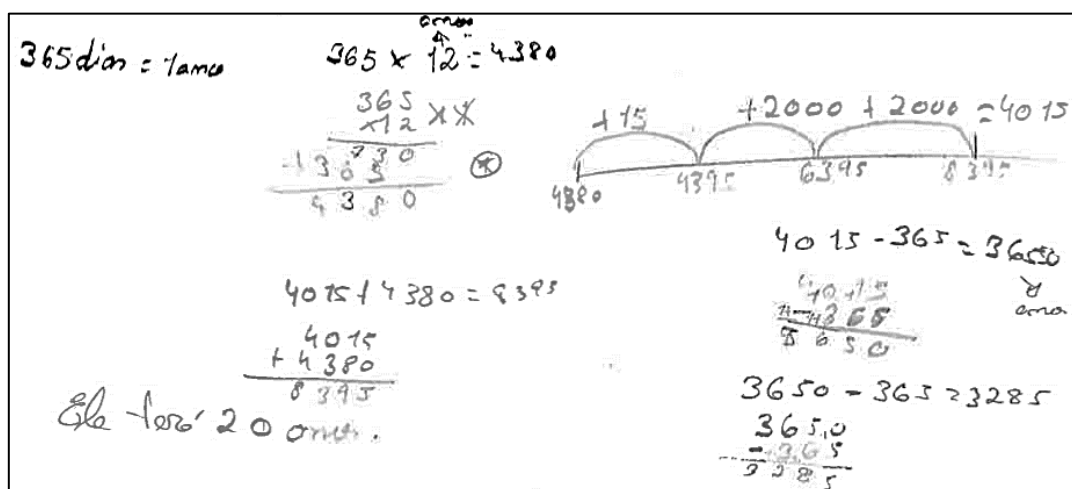 365 dias = 1 ano
anos
365 x 12 = 4380
365
x12
730
+365
4380
+15 +2000 +2000 = 4015
4380 4395 6395 8395
4015 - 365 = 3650
4015
365
3650
4015 + 4380 = 8395
4015
+ 4380
8395
3650 - 365 = 3285
3650
- 365
3285
Ele terá 20 anos.